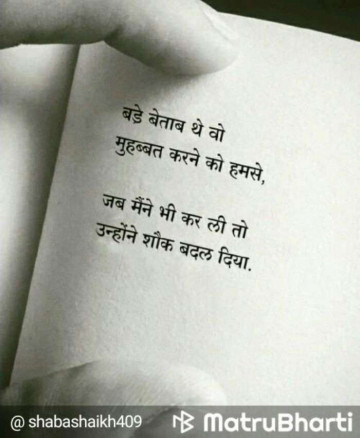 बड़े बेताब थे वो
मुहब्बत करने को हमसे,
जब मैंने भी कर ली तो
उन्होंने शौक बदल दिया.
@ shabashaikh409 MatruBharti